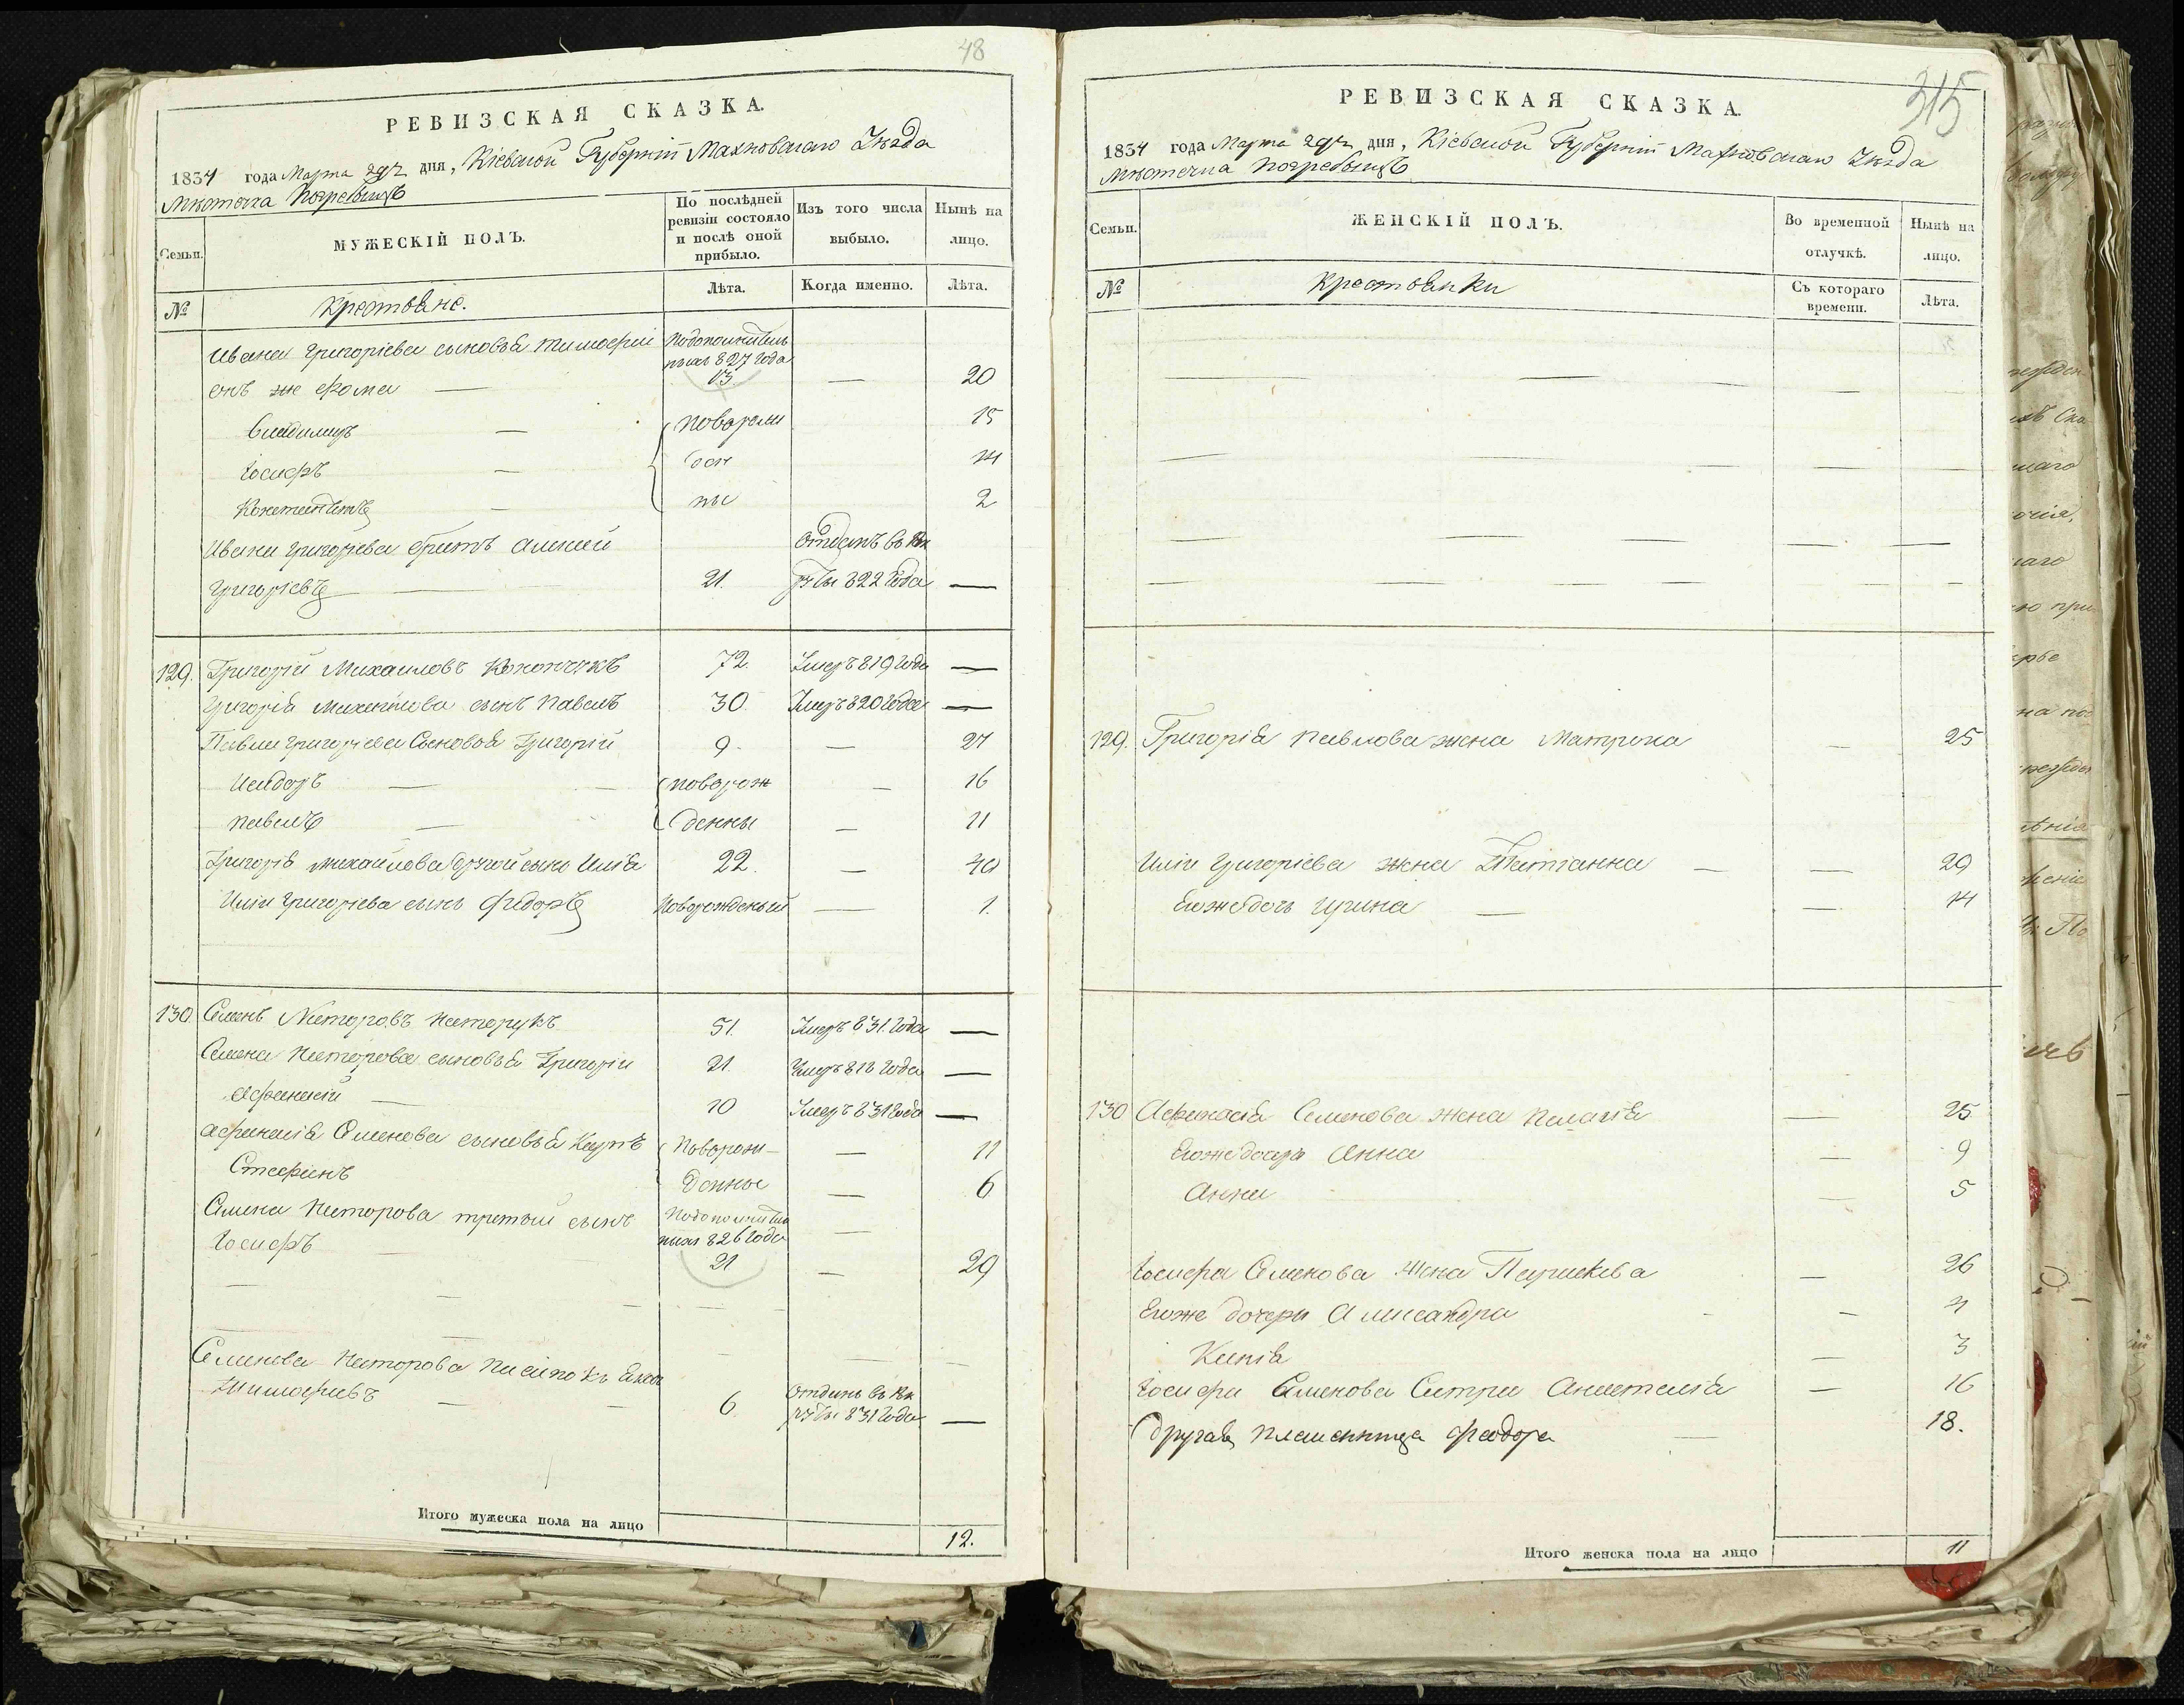 48
РЕВИЗСКАЯ СКАЗКА.
1834 года Марта 29го дня, Кіевской Губерніи Махновскаго Уѣзда
Мѣстечка Погребищъ
Семьи.
МУЖЕСКІЙ ПОЛЪ.
По послѣдней ревизіи состояло и послѣ оной прибыло.
Изъ того числа выбыло.
Нынѣ на лицо.
№
Крестьяне.
Лѣта.
Когда именно.
Лѣта.
Ивана Григоріева сыновья Тимофей
онъ же Фома — 13. — 20
15
Іосифъ — 14
Константинъ — 2
Ивана Григорьева братъ Алексей
Григоріевъ — 21. 822 года —
129. Григорій Михаиловъ 72. Умеръ 819 года —
Григорія Михайлова сынъ Павелъ 30 Умеръ 820 года —
Павла Григоріева Сыновья Григорій 9. — 27
Исидоръ — новорож — 16
Павелъ — денны — 11
Григорія Михайлова другой сынъ Илія 22. — 40
Иліи Григоріева сынъ Федоръ Новорожденый — 1.
130. Семенъ Несторовъ Несторукъ 51. Умеръ 831. года —
Семена Несторова сыновья Григорій 21. Умеръ 818 года —
Афанасій — 10 Умеръ 831 года —
Афанасія Семенова сыновья Карпъ Новорож — 11
Стефанъ денные — 6
Семена Несторова третій сынъ
Іосифъ 826 года —
21 — 29
Семенова Несторова
Тимофеевъ — 6. 831 года —
Итого мужеска пола на лицо 12.
315
РЕВИЗСКАЯ СКАЗКА.
1834 года Марта 29го дня, Кіевской Губерніи Махновскаго Уѣзда
Мѣстечка Погребищъ
Семьи.
ЖЕНСКІЙ ПОЛЪ.
Во временной отлучкѣ.
Нынѣ на лицо.
№
Крестьянки
Съ котораго времени.
Лѣта.
129. Григорія Павлова жена Матрона — 25
Иліи Григоріева жена Татіанна — 29
Егоже дочь Ирина — 14
130 Афанасія Семенова жена Палагія — 25
Егоже дочери Анна — 9
Анна — 5
Іосифа Семенова Жена Параскева — 26
Егоже дочери Александра — 4
Ксенія — 3
Іосифа Семенова Сестра Анастасія — 16
Другая племенница Феодора — 18.
Итого женска пола на лицо 11